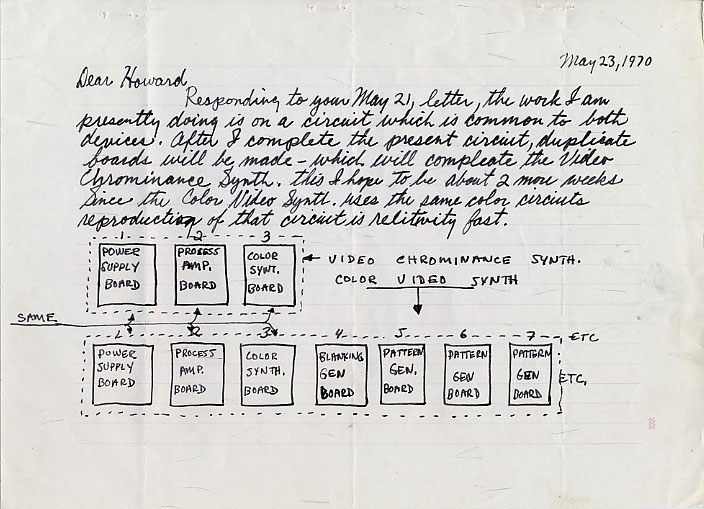 May 23, 1970
Dear Howard
Responding to your May 21, letter, the work I am
presently doing is on a circuit which is common to both
devices. After I complete the present circuit, duplicate
boards will be made – which will compleate the Video
Chrominance Synth. this I hope to be about 2 more weeks
Since the Color Video Synth. uses the same color circuits
reproduction of that circuit is relitivity fast.
1 2 3
POWER SUPPLY BOARD
PROCESS AMP. BOARD
COLOR SYNT. BOARD
← VIDEO CHROMINANCE SYNTH.
COLOR VIDEO SYNTH
SAME
1 2 3 4 5 6 7 ETC
POWER SUPPLY BOARD
PROCESS AMP. BOARD
COLOR SYNTH. BOARD
BLANKING GEN BOARD
PATTERN GEN. BOARD
PATTERN GEN BOARD
PATTERN GEN BOARD
ETC.